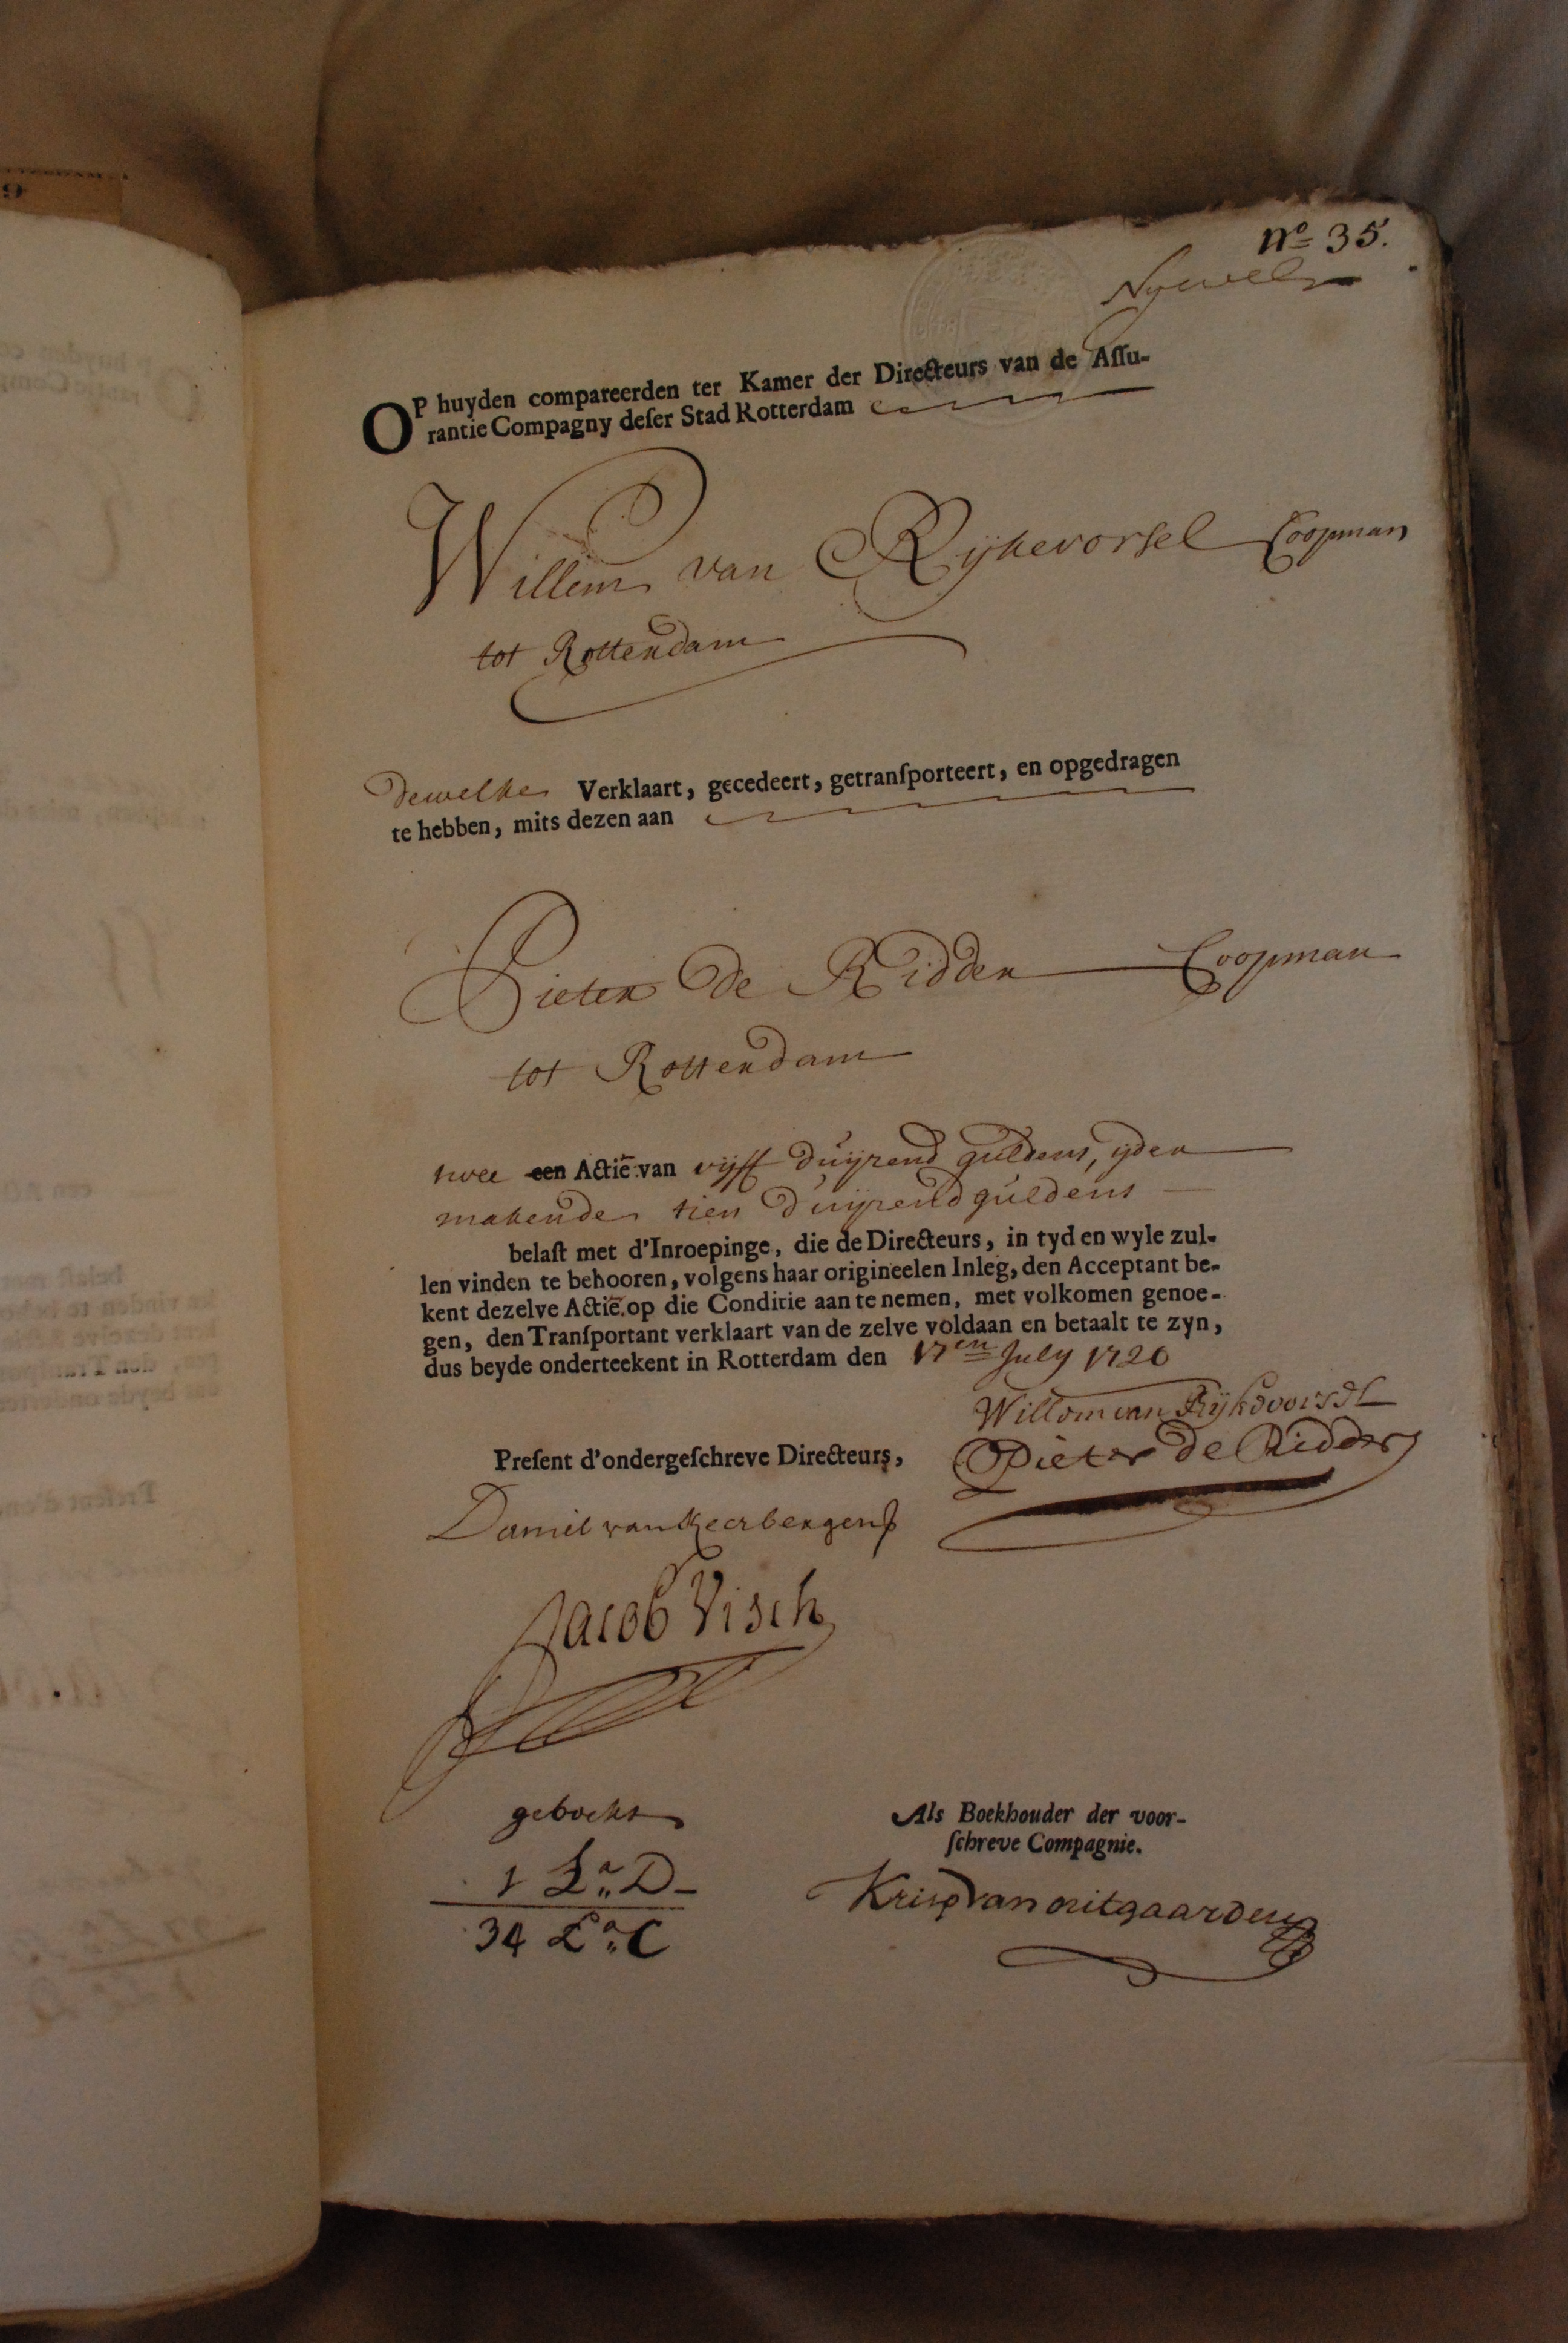 No 35.
OP huyden compareerden ter Kamer der Directeurs van de Aſſu-
rantie Compagny deſer Stad Rotterdam
Willem van Rijkevorsel Coopman
tot Rotterdam
dewelke Verklaart, gecedeert, getranſporteert, en opgedragen
te hebben, mits dezen aan
Pieter de Ridder Coopman
tot Rotterdam
twee een Actie van vijff duijzend guldens, ijder
makende tien duijzend guldens
belaſt met d'Inroepinge, die de Directeurs, in tyd en wyle zul-
len vinden te behooren, volgens haar origineelen Inleg, den Acceptant be-
kent dezelve Actie op die Conditie aan te nemen, met volkomen genoe-
gen, den Tranſportant verklaart van de zelve voldaan en betaalt te zyn,
dus beyde onderteekent in Rotterdam den 17en July 1720
Willem van Rijkevorsel
Preſent d'ondergeſchreve Directeurs, Pieter de Ridder
Daniel van Keerbergen
Jacob Visch
geboekt
1 La D
34 La C
Als Boekhouder der voor-
ſchreve Compagnie.